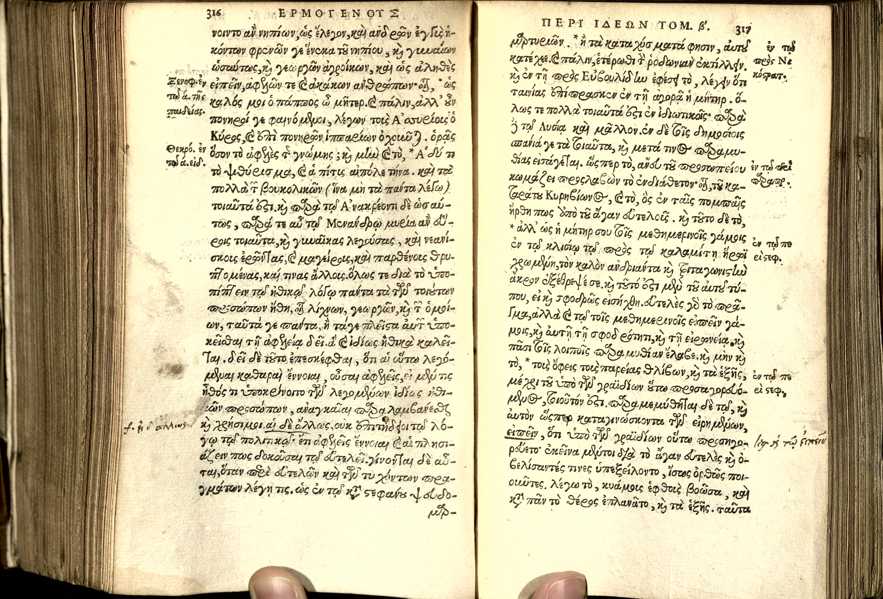 316 ΕΡΜΟΓΕΝΟΥΣ
νοιντο ἂν νηπίων, ὡς ἔλεγον, καὶ ἀνδρῶν ἐγγὺς ἡ-
κόντων φρενῶν γε ἕνεκα τοῦ νηπίου, καὶ γυναικῶν
ὡσαύτως, καὶ γεωργῶν ἀγροίκων, καὶ ὡς ἀληθῶς
εἰπεῖν, ἀφελῶν τε καὶ ἀκάκων ἀνθρώπων· οἷον, ὡς
καλός μοι ὁ πάππος ὦ μῆτερ. καὶ πάλιν, ἀλλ' οὖν
πονηροί γε φαινόμενοι, λέγων τοὺς Ἀσσυρίους ὁ
Κῦρος, καὶ ἐπὶ πονηρῶν ἱππαρίων ὀχοῦνται. ὁρᾷς
ὅσον τὸ ἀφελὲς τῆς γνώμης; καὶ μὴν καὶ τὸ, Ἁδύ τι
τὸ ψιθύρισμα, καὶ ἁ πίτυς αἰπόλε τήνα. καὶ τὰ
πολλὰ τῶν βουκολικῶν (ἵνα μὴ τὰ πάντα λέγω)
τοιαῦτά ἐστι. καὶ παρὰ τῷ Ἀνακρέοντι δὲ ὡσαύ-
τως, παρά τε αὖ τῷ Μενάνδρῳ μυρία ἂν εὕ-
ροις τοιαῦτα, καὶ γυναῖκας λεγούσας, καὶ νεανί-
σκους ἐρῶντας, καὶ μαγείρους, καὶ παρθένους θρυ-
πτομένας, καί τινας ἄλλους. ὅλως τε διὰ τὸ ὑπο-
πίπτειν τῷ ἠθικῷ λόγῳ πάντα τὰ τῶν τοιούτων
προσώπων ἤθη, οἷον λίχνων, γεωργῶν, καὶ τῶν ὁμοί-
ων, ταῦτά γε πάντα, ἢ τά γε πλεῖστα αὐτῶν ὑπο-
κεῖσθαι τῇ ἀφελείᾳ δεῖ. ἃ καὶ ἰδίως ἠθικὰ καλεῖ-
ται. δεῖ δὲ τοῦτο ἐπεσκέφθαι, ὅτι αἱ οὕτω λεγό-
μεναι καθαραὶ ἔννοιαι, οὖσαι ἀφελεῖς, εἰ μέν τις
ἦθός τι ὑποκρίνοιτο τῶν λεγομένων ἰδίως ἠθι-
κῶν προσώπων, ἀναγκαῖαι παραλαμβάνεσθαι
καὶ χρήσιμοι. αἱ δὲ ἄλλως, οὐκ ἐπιτήδειοι τῷ λό-
γῳ τῷ πολιτικῷ. ἔτι ἀφελεῖς ἔννοιαι καὶ αἱ πλησι-
άζειν πως δοκοῦσαι τῷ εὐτελεῖ. γίνονται δὲ αὗ-
ται, ὅταν περὶ εὐτελῶν καὶ τῶν τυχόντων πρα-
γμάτων λέγῃ τις. ὡς ἐν τῷ κατὰ Στεφάνου ψευδο-
μαρ-
Ξενοφῶν ἐν
τῷ α. τῆς
παιδείας.
Θεόκρ. ἐν
τῷ α. εἰδ.
317 ΠΕΡΙ ΙΔΕΩΝ ΤΟΜ. β.
μαρτυριῶν. ἢ τὰ καταχύσματά φησιν, αὐτοῦ
κατέχει. καὶ πάλιν, ἑτέρωθι τὴν ῥοδωνιὰν ἐκτίλλειν.
καὶ ἐν τῇ πρὸς Εὐβουλίδην ἐφέσει τὸ, λέγειν ὅτι
ταινίας ἐπίπρασκεν ἐν τῇ ἀγορᾷ ἡ μήτηρ. ὅ-
λως τε πολλὰ τοιαῦτά ἐστι ἐν ἰδιωτικοῖς παρὰ
τῷ Λυσίᾳ καὶ μᾶλλον. ἐν δὲ τοῖς δημοσίοις
σπάνιά γε τὰ τοιαῦτα, καὶ μετά τινος παραμυ-
θίας εἰσάγεται. ὥσπερ τὸ, ἄνευ τοῦ προσωπείου
κωμάζει προσλαβὼν τὸ ἐνδιάθετον οἷον, τοῦ κα-
ταράτου Κυρηβίωνος, καὶ τὸ, ὃς ἐν ταῖς πομπαῖς
ἤρθη πως ὑπὸ τοῦ ἄγαν εὐτελοῦς. καὶ τοῦτο δὲ τὸ,
ἀλλ' ὡς ἡ μήτηρ σου τοῖς μεθημερινοῖς γάμοις
ἐν τῷ κλισίῳ τῷ πρὸς τῷ καλαμίτῃ ἥρωϊ
χρωμένη, τὸν καλὸν ἀνδριάντα καὶ τριταγωνιστὴν
ἄκρον ἐξέθρεψέ σε. καὶ τοῦτό ἐστι μὲν τοῦ αὐτοῦ τύ-
που, εἰ καὶ σφοδρῶς εἰσήχθη. εὐτελὲς γὰρ τὸ πρᾶ-
γμα, ἀλλὰ καὶ τῷ τοῖς μεθημερινοῖς εἰπεῖν γά-
μοις, καὶ αὐτῇ τῇ σφοδρότητι, καὶ τῇ εἰρωνείᾳ, καὶ
πᾶσι τοῖς λοιποῖς παραμυθίαν ἔλαβε. καὶ μὴν καὶ
τὸ, τοὺς ὄφεις τοὺς παρείας θλίβων, καὶ τὰ ἑξῆς,
μέχρι τοῦ ὑπὸ τῶν γραϊδίων οὕτω προσαγορευό-
μενος, τοιοῦτόν ἐστι. παραμεμύθηται δὲ τῷ, καὶ
αὐτὸν ὥσπερ καταγινώσκοντα τῶν εἰρημένων,
εἰπεῖν, ὅτι ὑπὸ τῶν γραϊδίων οὕτω προσηγο-
ρεύετο· ἐκεῖνα μέντοι διὰ τὸ ἄγαν εὐτελὲς καὶ ὀ-
βελίσαντές τινες ὑπεξεῖλοντο, ἴσως ὀρθῶς ποι-
οῦντες. λέγω τὸ, κυάμους ἑφθοὺς βοῶσα, καὶ
κατὰ πᾶν τὸ θέρος ἐπλανᾶτο, καὶ τὰ ἑξῆς. ταῦτα
ἐν τῷ
πρὸς Νι
κόστρατ.
ἐν τῷ περὶ
παραπρ.
ἐν τῷ περὶ
στεφ.
ἐν τῷ πε
ρὶ στεφ.